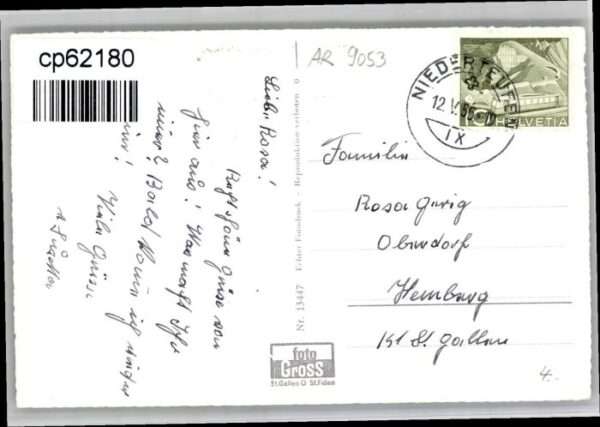 cp62180
AR 9053
NIEDERTEUFEN
12. V.
IX
HELVETIA
Liebe Rosa!
Grüsse von
hier aus! Was macht Ihr
immer? Bald komm ich wieder
Viele Grüsse
Nr. 13447 Echter Fotodruck - Reproduktion verboten
Familie
Rosa
Oberdorf
Hemberg
Kt St. Gallen
foto
GROSS
St.Gallen O St.Fiden
4.-